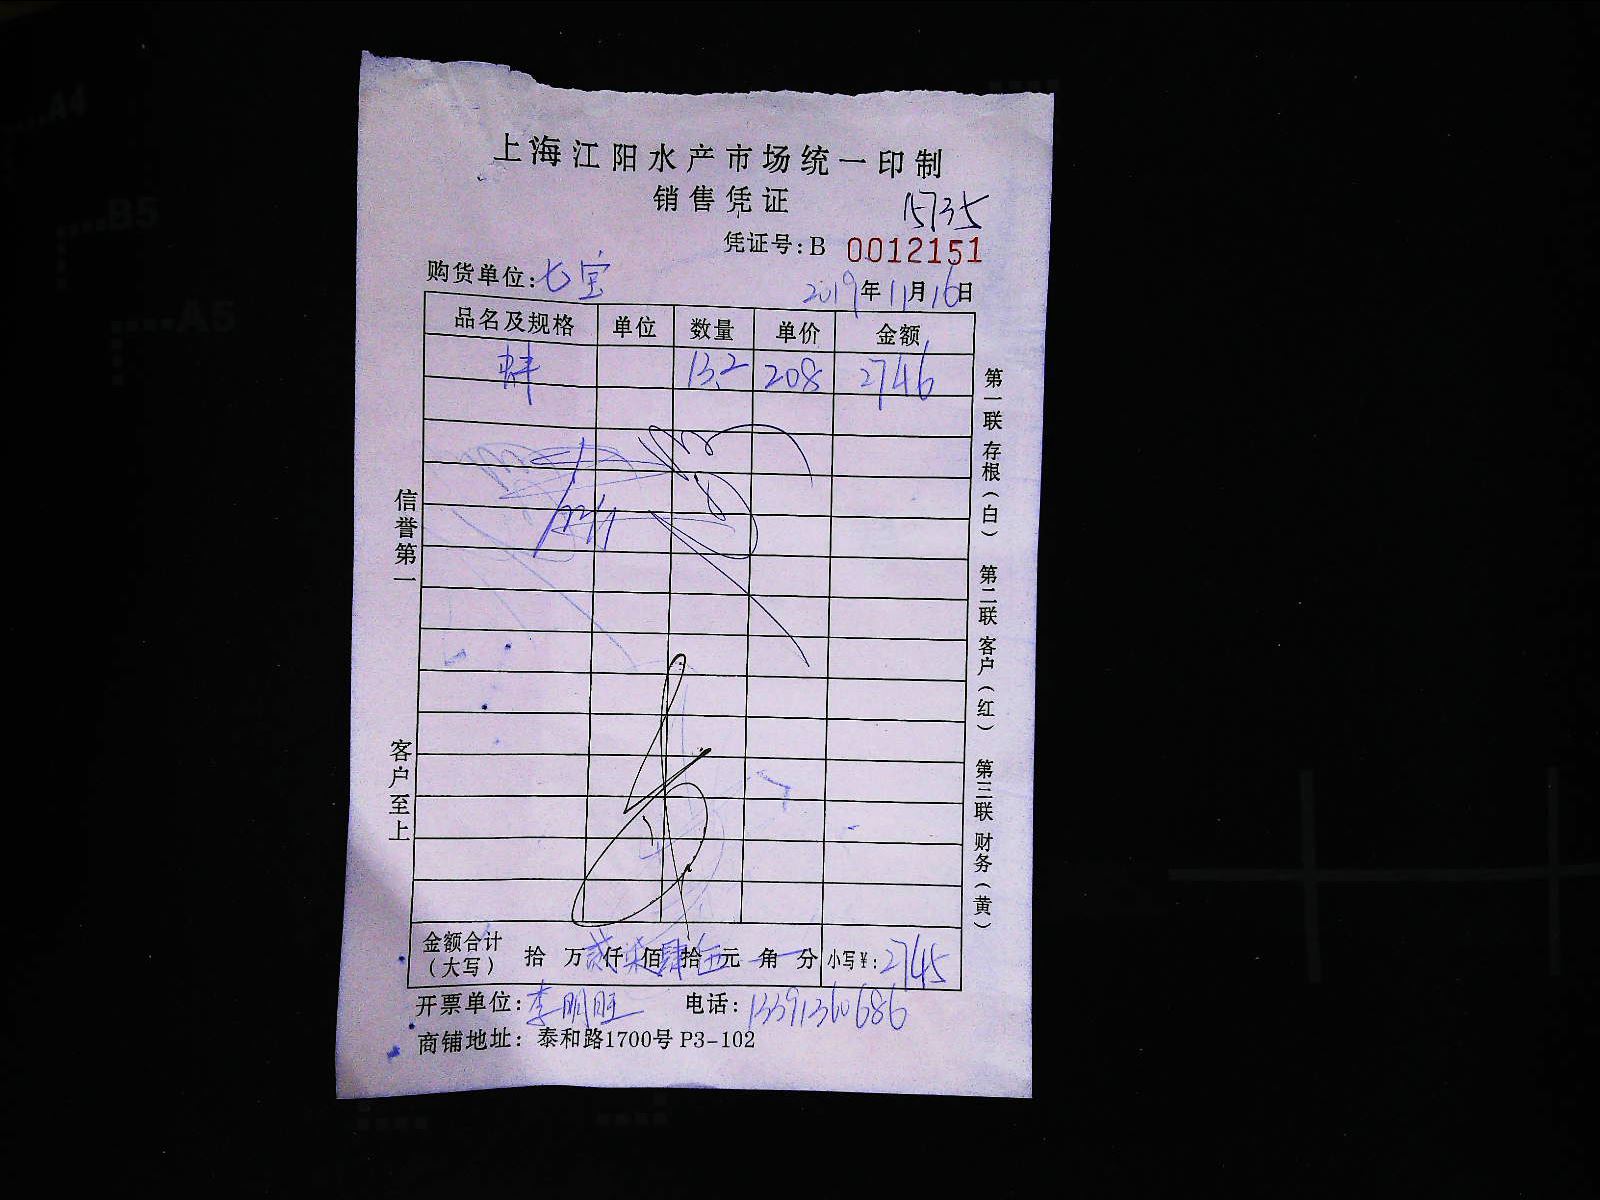 上海江阳水产市场统一印制
销售凭证
15735
凭证号:B 0012151
购货单位:七宝 2019年11月16日
品名及规格 单位 数量 单价 金额
蚌 13.2 208 2746
信誉第一
客户至上
第一联 存根(白) 第二联 客户(红) 第三联 财务(黄)
金额合计(大写) 拾 万贰仟柒佰肆拾伍元 角 分 小写¥:2745
开票单位:李明旺 电话:13391360686
商铺地址:泰和路1700号 P3-102
A4
B5
A5